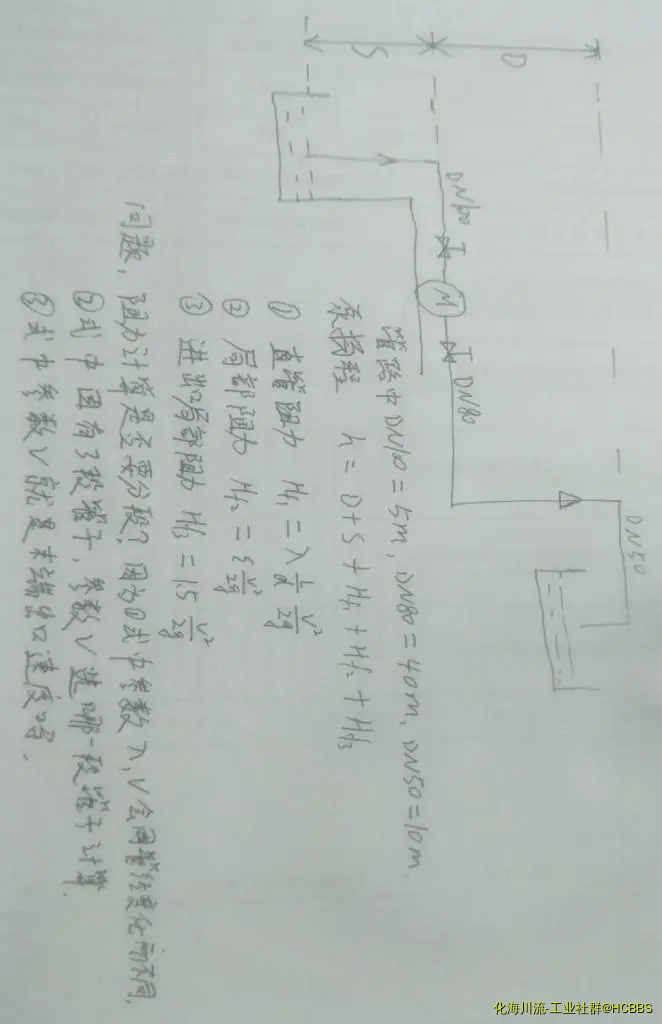 S
D
DN100
M
DN80
DN50
管路中DN100=5m, DN80=40m, DN50=10m.
泵扬程 h=D+S+Hf1+Hf2+Hf3
① 直管阻力 Hf1=λ l/d v²/2g
② 局部阻力 Hf2=ξ v²/2g
③ 进出口局部阻力 Hf3=1.5 v²/2g
问题, 阻力计算是否要分段? 因为①式中参数λ,v会因管径变化而不同,
②式中因有3段管子,参数v选哪一段管子计算.
③式中参数v就是末端出口速度吗.
化海川流-工业社群@HCBBS